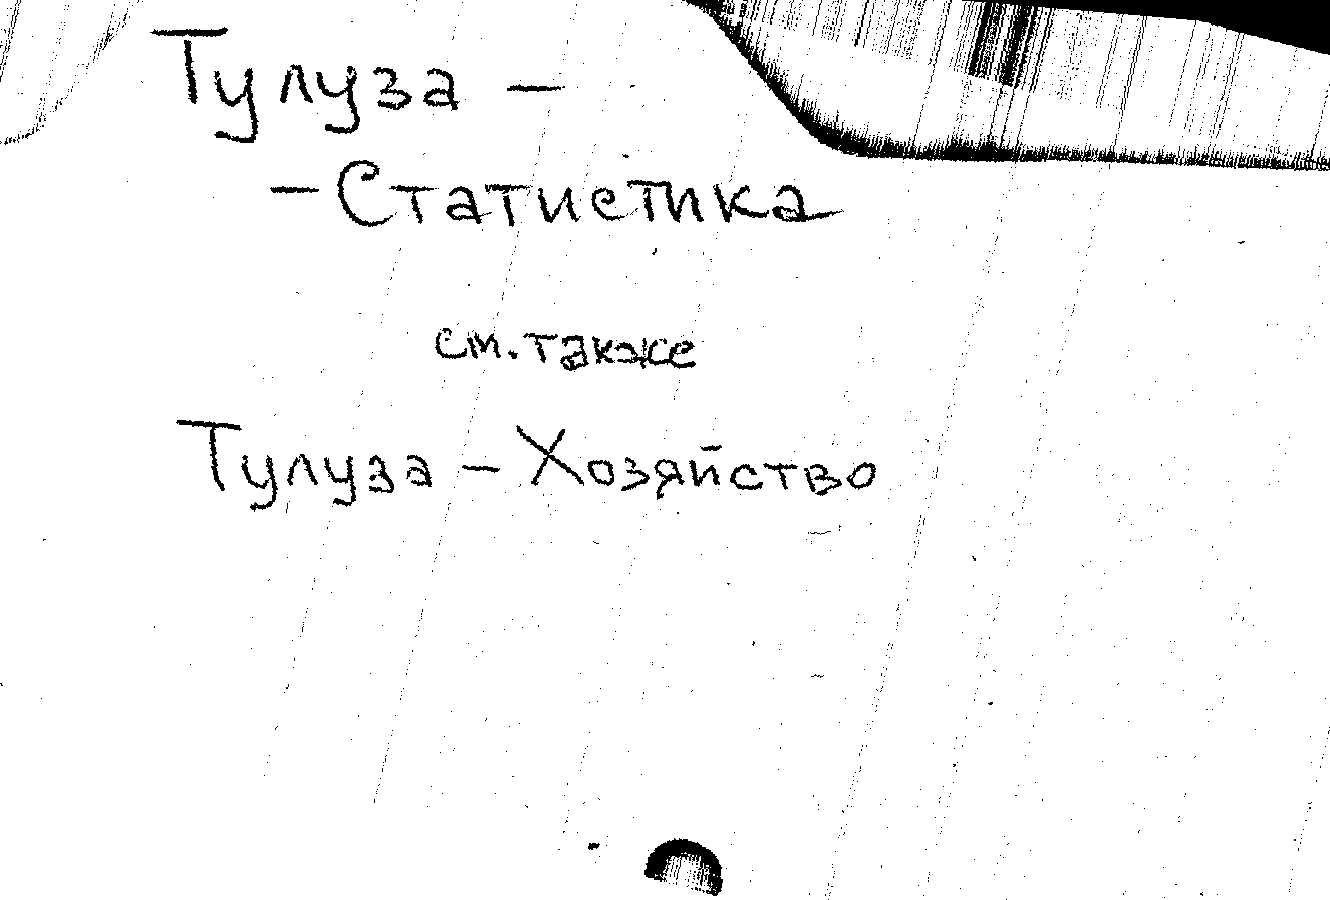 Тулуза –
– Статистика
см. также
Тулуза – Хозяйство